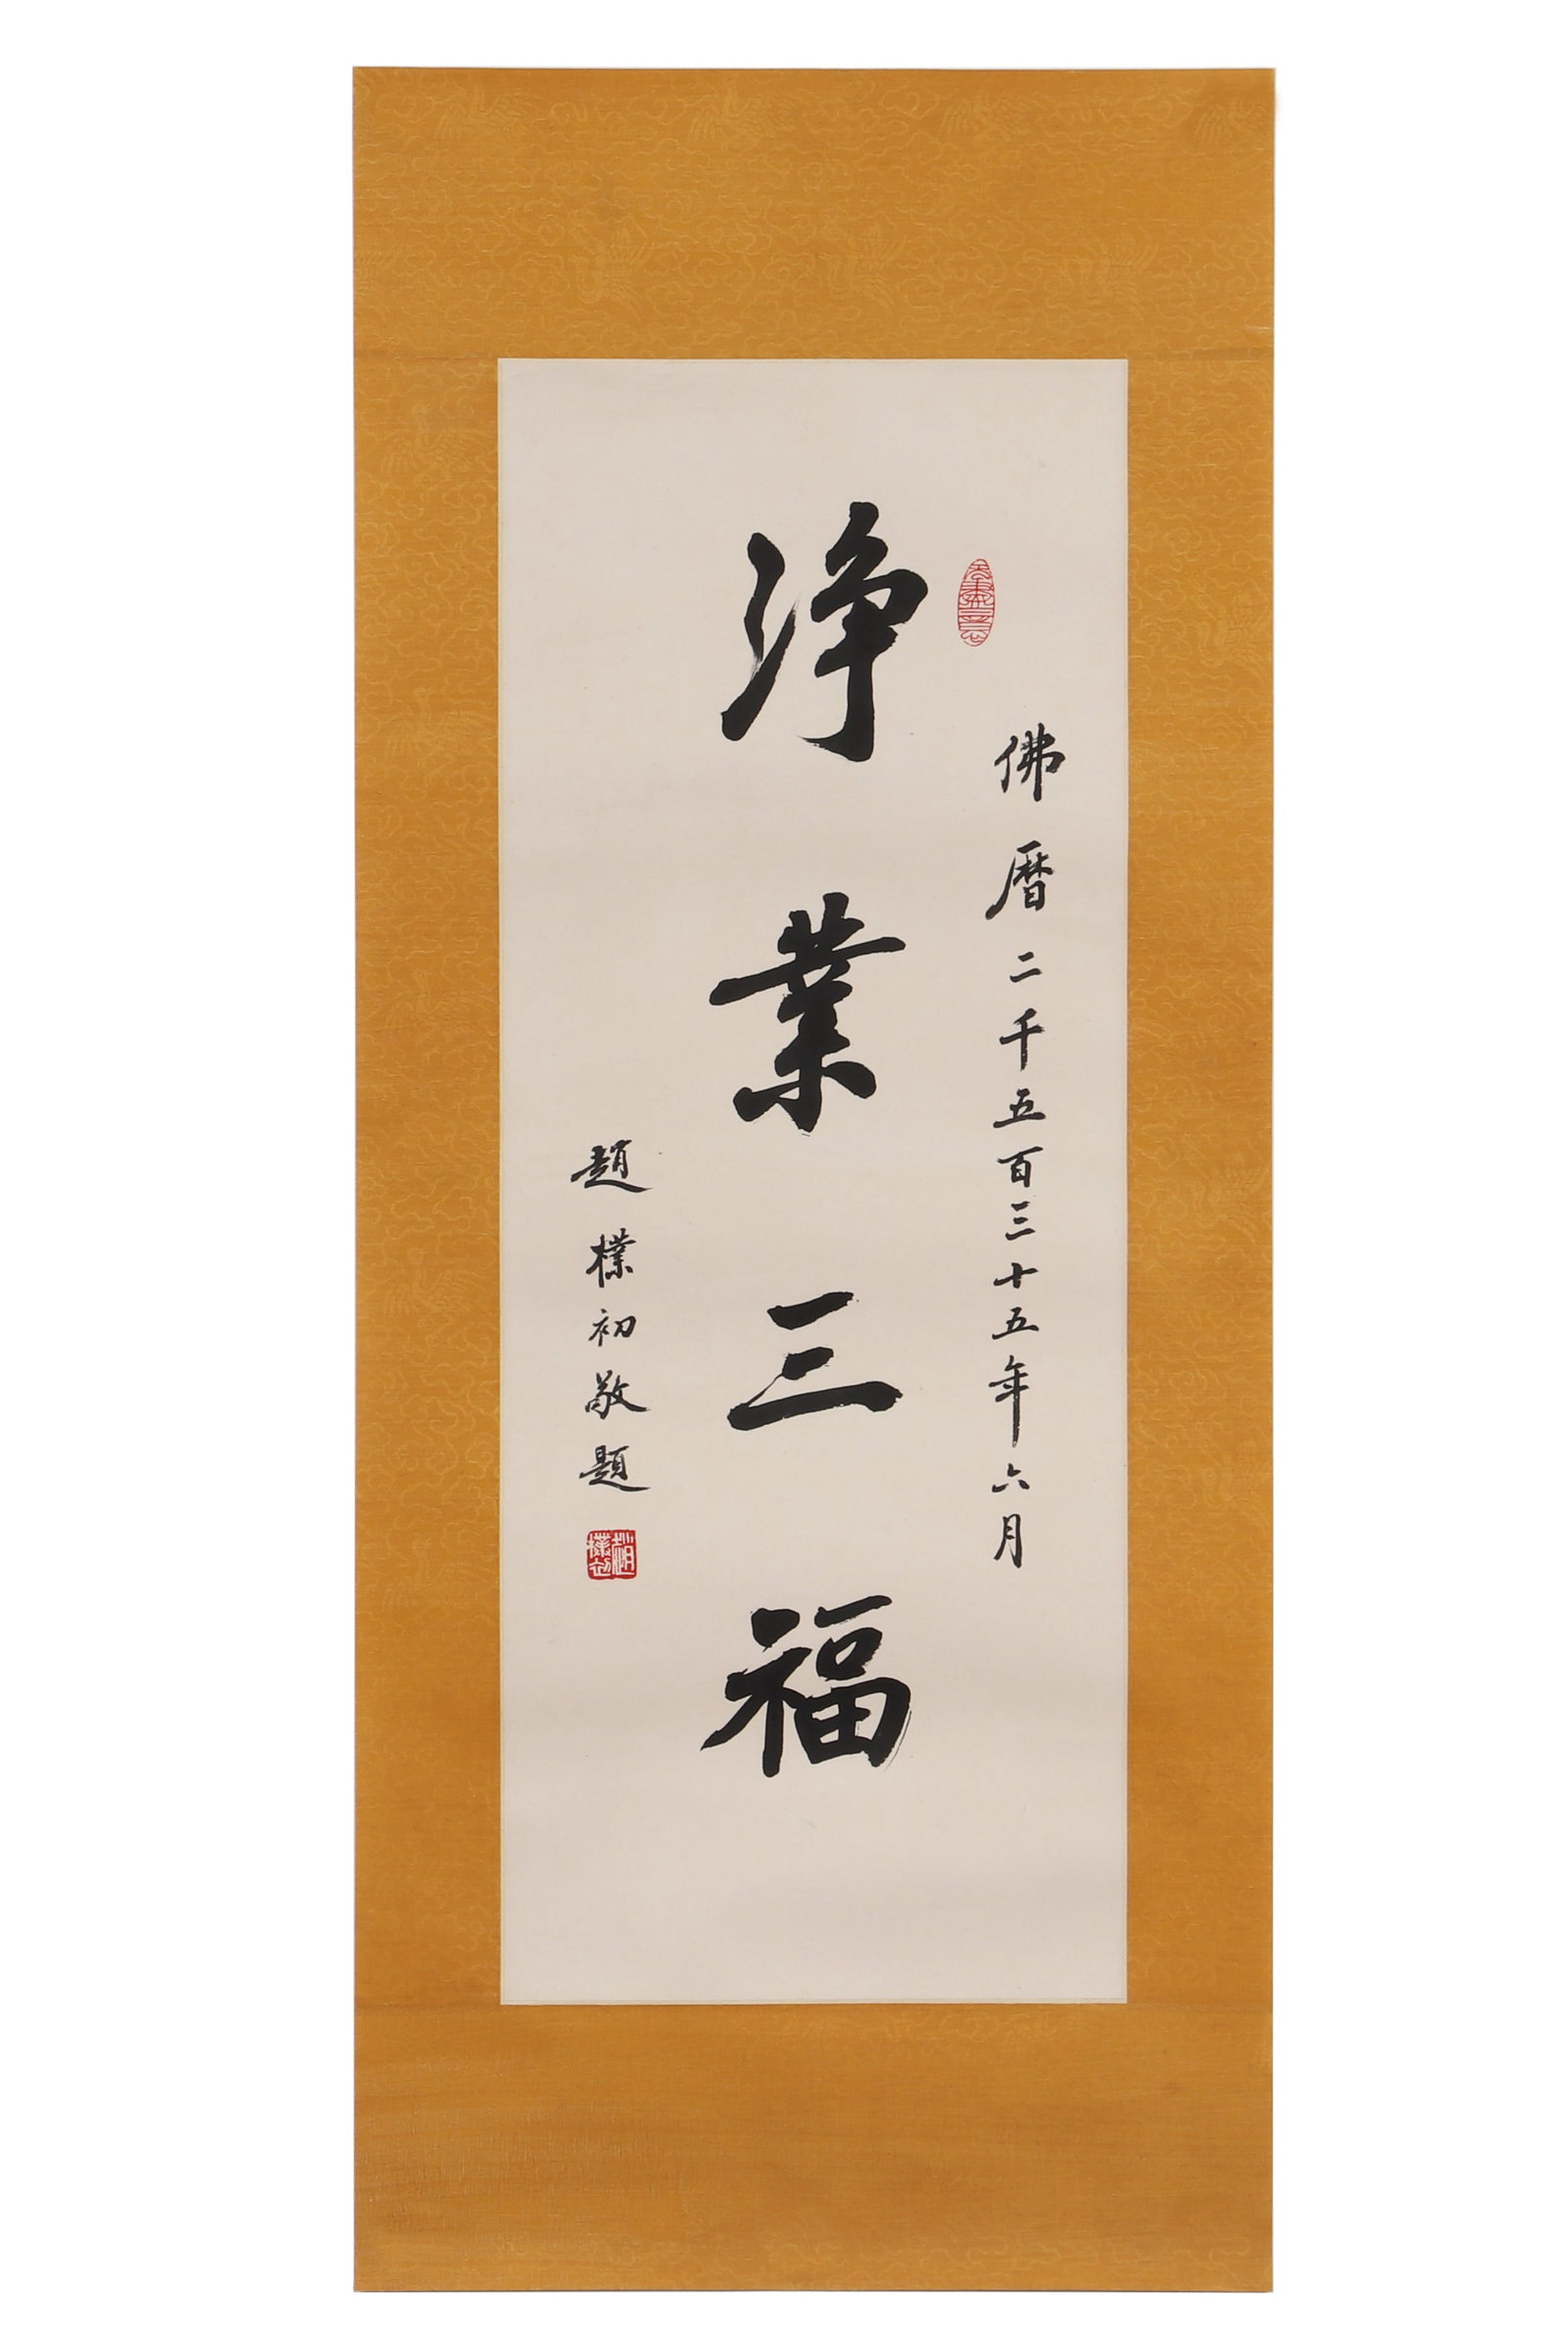 佛曆二千五百三十五年六月
淨業三福
趙樸初敬題
趙樸初